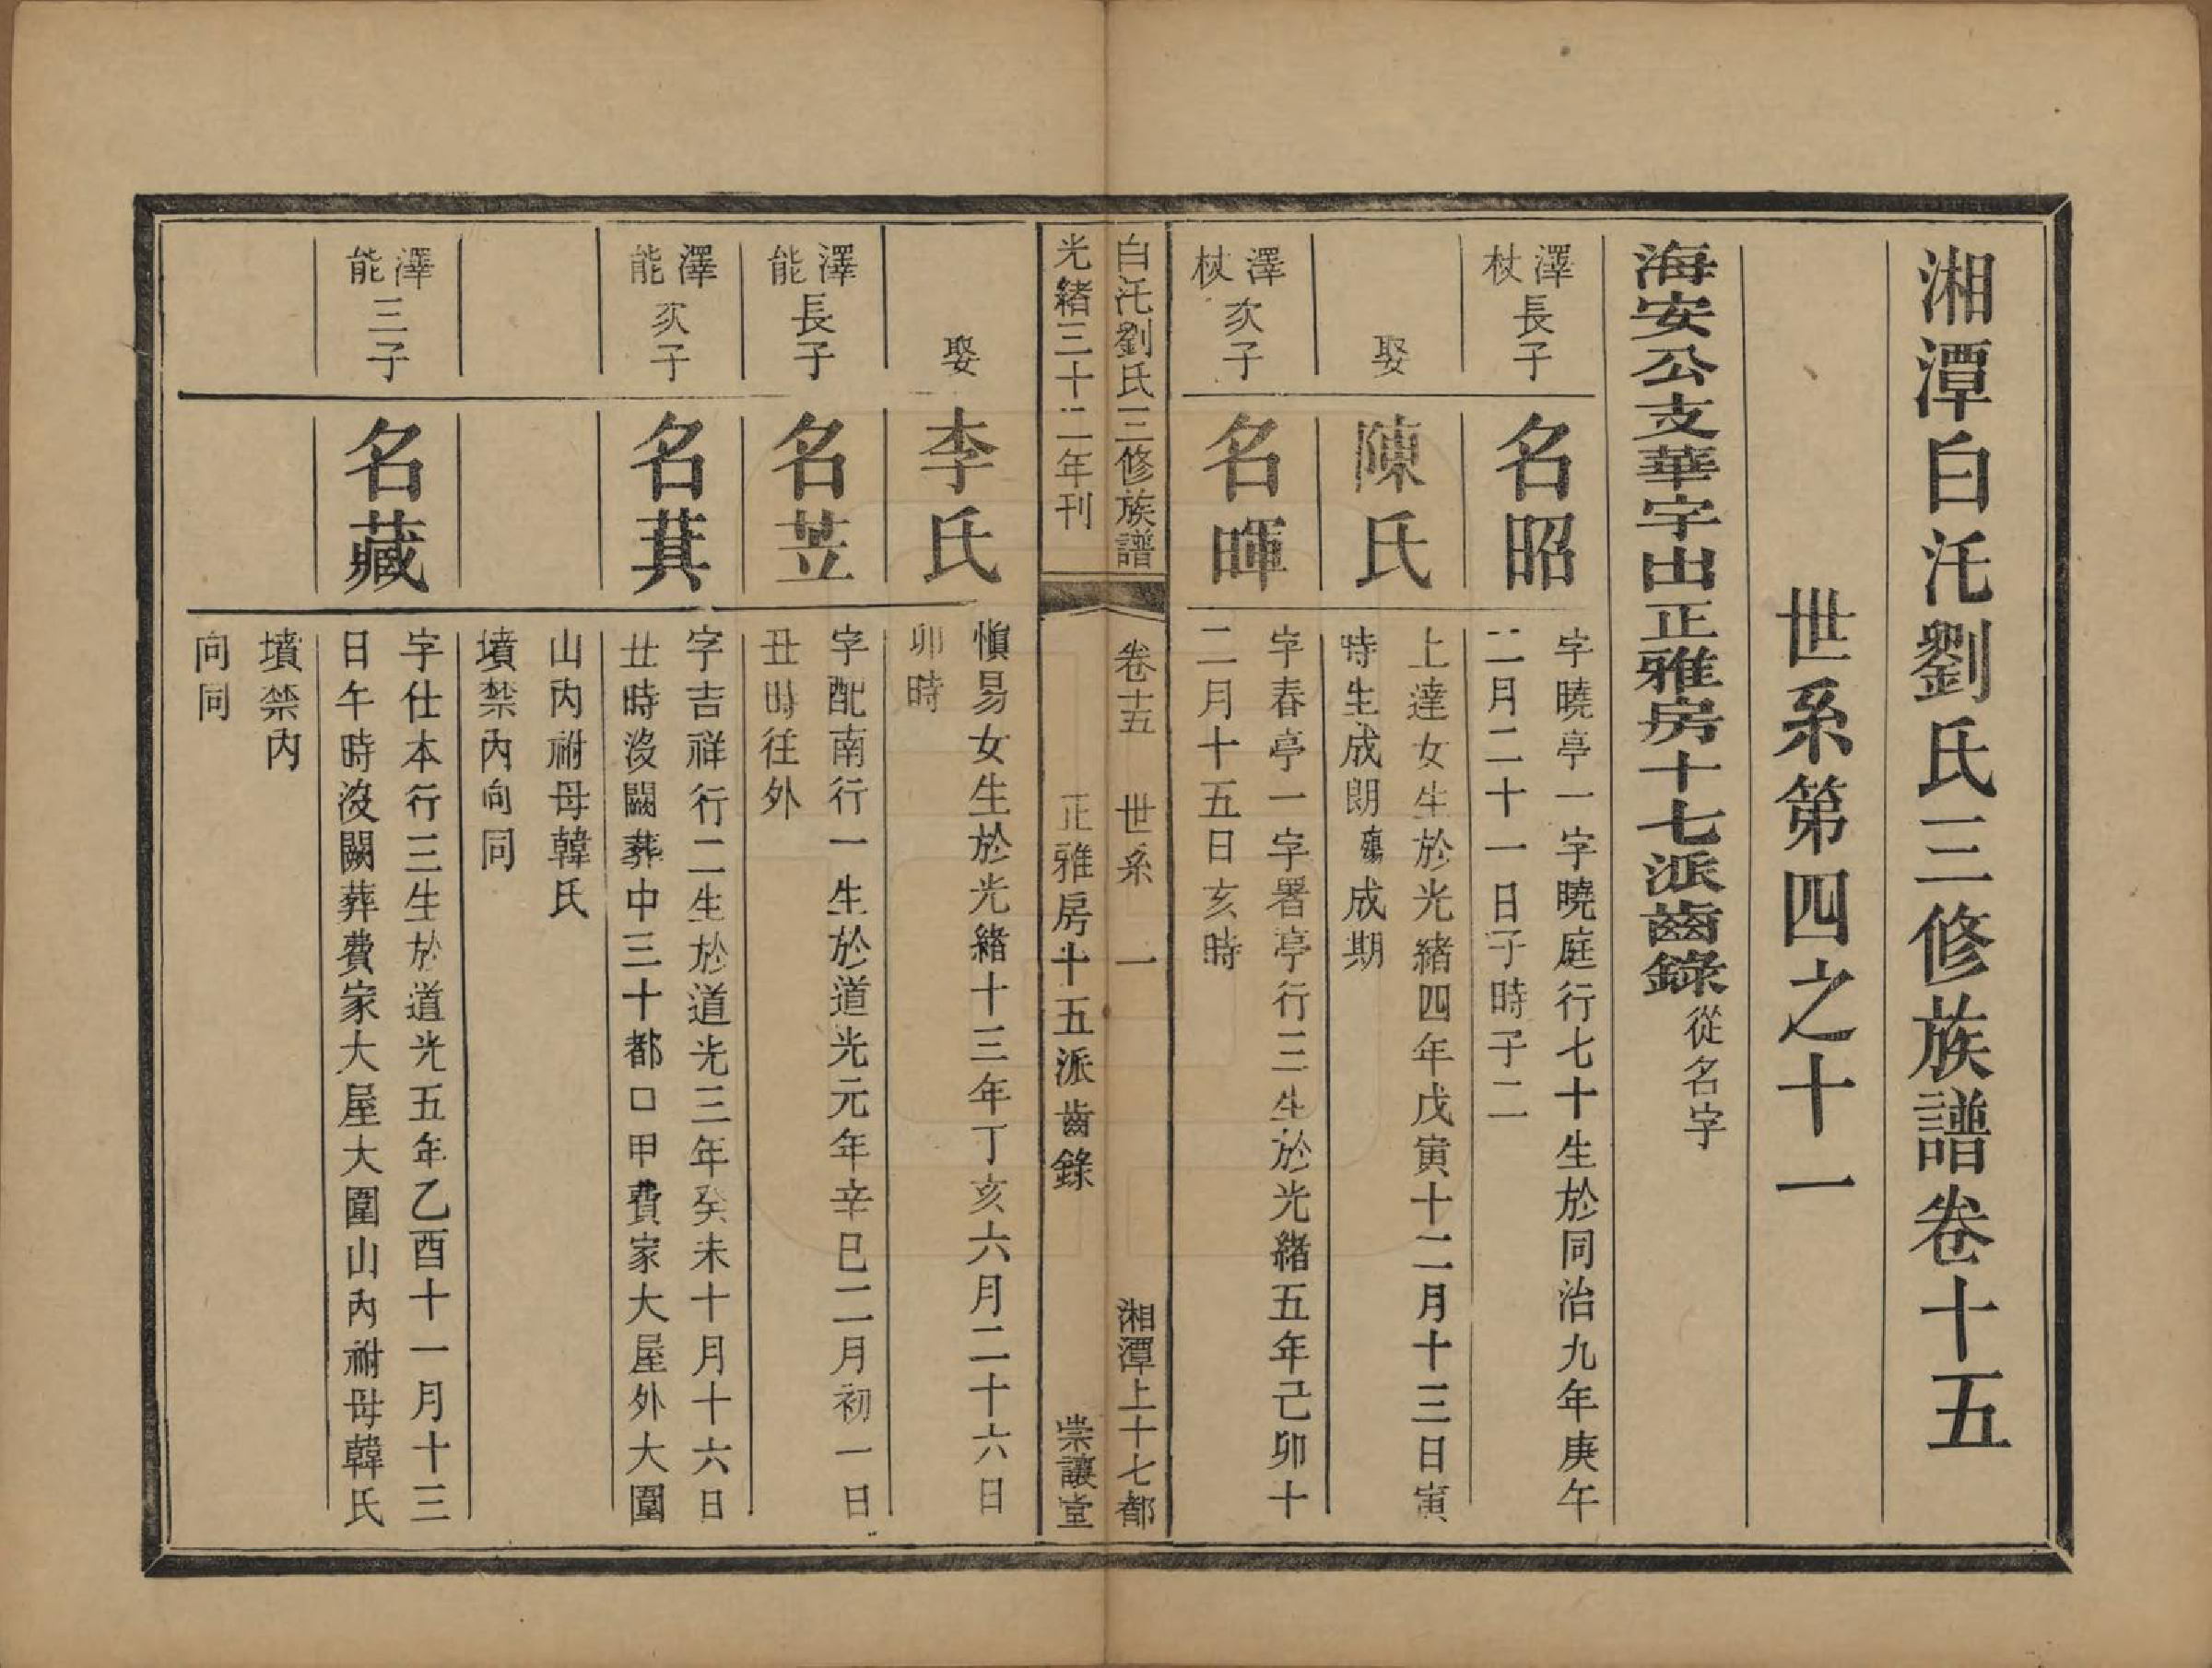 湘潭白汑劉氏三修族譜卷十五
世系第四之十一
海安公支華宇出正雅房十七派齒錄從名字
澤杖長子
名昭
字曉亭一字曉庭行七十生於同治九年庚午
二月二十一日子時子二
娶
陳氏
上達女生於光緒四年戊寅十二月十三日寅
時生成朗殤成期
澤杖次子
名暉
字春亭一字署亭行三生於光緒五年己卯十
二月十五日亥時
白汑劉氏三修族譜
卷十五 世系 一
湘潭上十七都
光緒三十二年刊
正雅房十五派齒錄
崇讓堂
娶
李氏
慎易女生於光緒十三年丁亥六月二十六日
卯時
澤能長子
名昱
字配南行一生於道光元年辛巳二月初一日
丑時往外
澤能次子
名萁
字吉祥行二生於道光三年癸未十月十六日
丗時沒闕葬中三十都口甲費家大屋外大圍
山內祔母韓氏
墳禁內向同
澤能三子
名藏
字仕本行三生於道光五年乙酉十一月十三
日午時沒闕葬費家大屋大圍山內祔母韓氏
墳禁內
向同